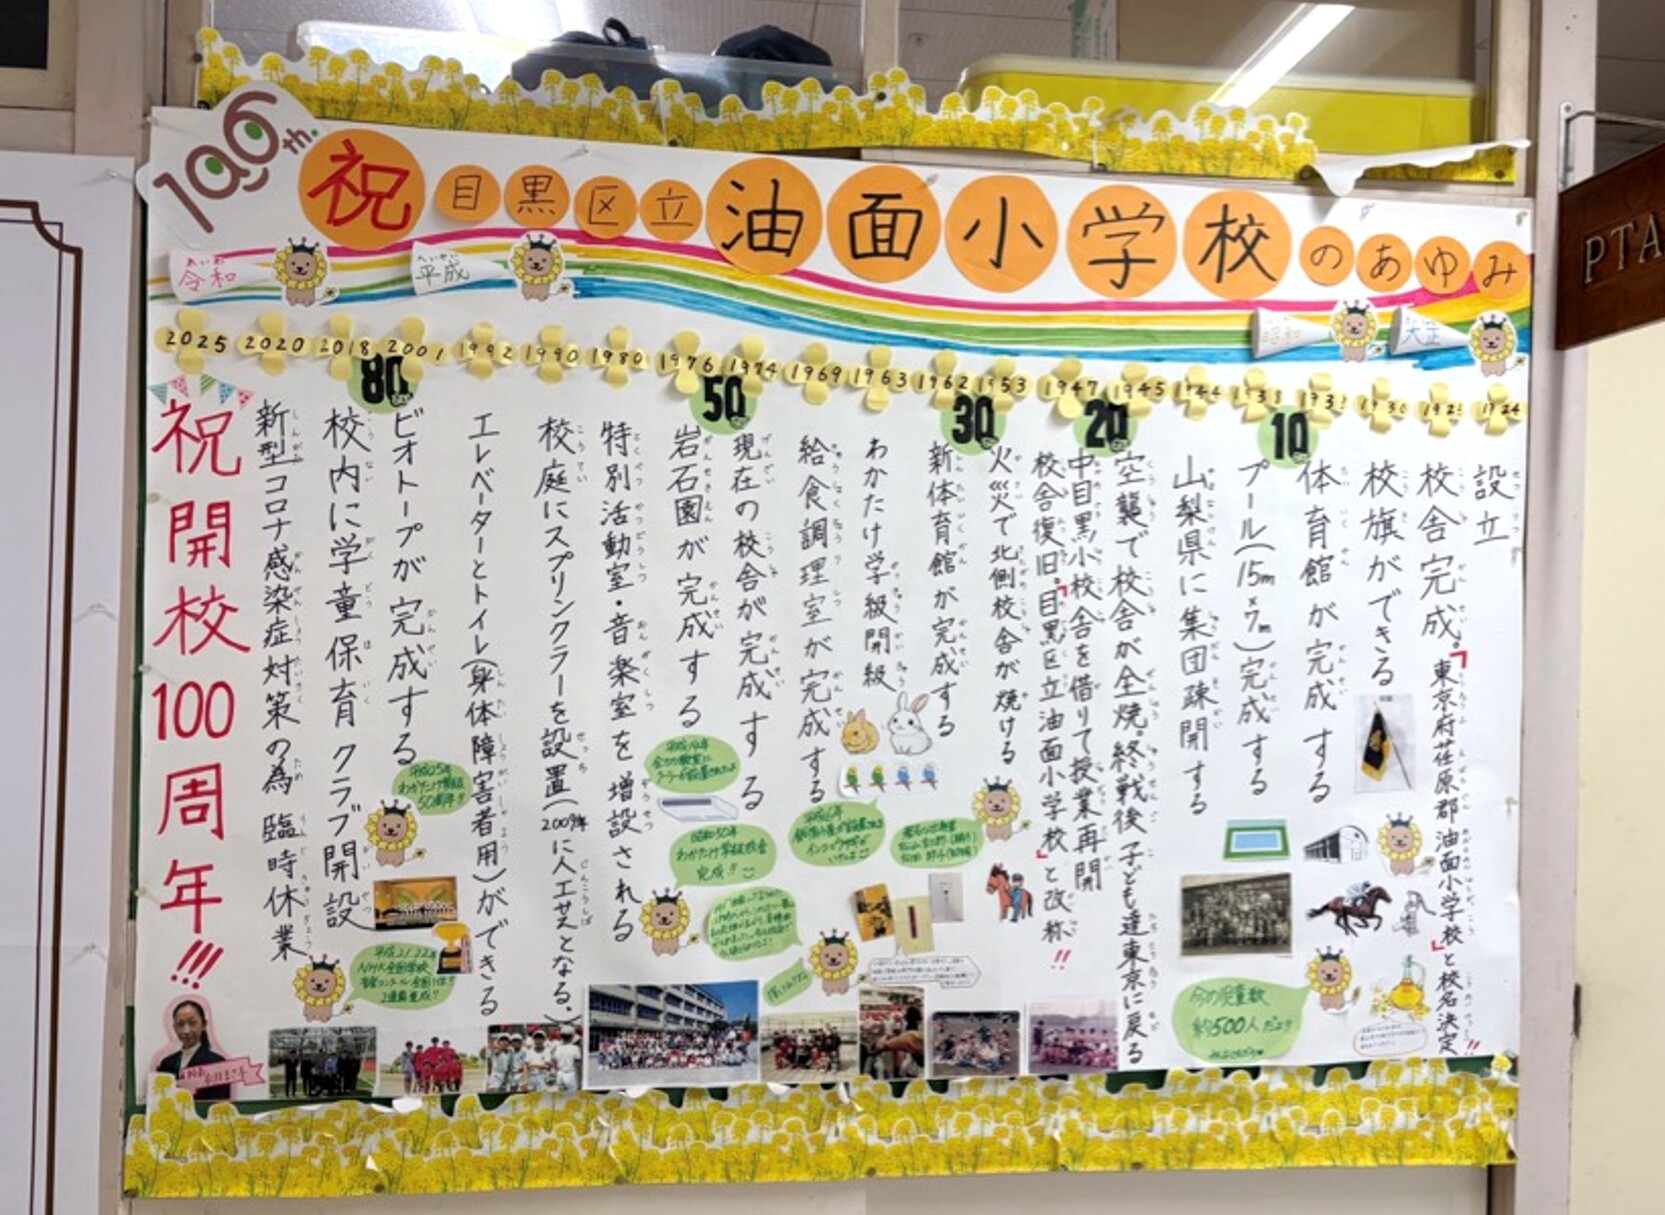 100th.
祝 目黒区立 油面小学校 のあゆみ
大正
昭和
平成
令和
1924
設立
校舎完成。「東京府荏原郡 油面小学校」と校名決定!!
1930
校旗ができる
体育館が完成する
1938
プール(15m×7m)完成する
1944
山梨県に集団疎開する
1945
空襲で校舎が全焼。終戦後子ども達東京に戻る
1947
中目黒小校舎を借りて授業再開
校舎復旧。「目黒区立油面小学校」と改称!!
1953
火災で北側校舎が焼ける
1962
新体育館が完成する
1963
わかたけ学級開級
1969
給食調理室が完成する
1974
現在の校舎が完成する
1976
岩石園が完成する
1980
特別活動室・音楽室を増設される
1990
校庭にスプリンクラーを設置(2009年に人工芝となる。)
1992
エレベーターとトイレ(身体障害者用)ができる
2001
ビオトープが完成する
2018
校内に学童保育クラブ開設
2020
新型コロナ感染症対策の為 臨時休業
2025
祝開校100周年!!!
10
20
30
50
80
今の児童数
約500人だよ
昭和50年
わかたけ学級校舎
完成!!
平成25年
わかたけ学級
50周年!!
平成21.22年
NHK全国学校
音楽コンクール全国1位!
2連覇達成!?
PTA